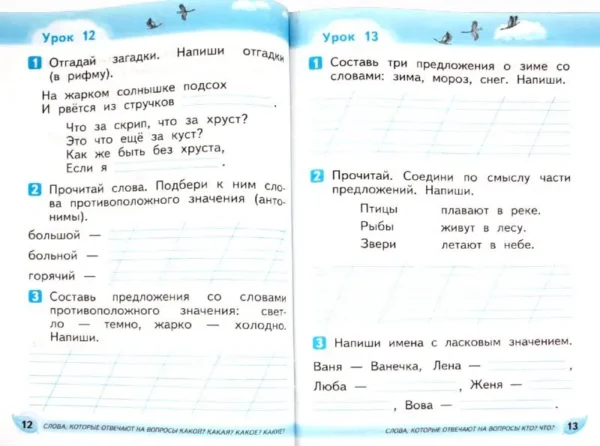 Урок 12
1 Отгадай загадки. Напиши отгадки
(в рифму).
На жарком солнышке подсох
И рвётся из стручков
Что за скрип, что за хруст?
Это что ещё за куст?
Как же быть без хруста,
Если я
2 Прочитай слова. Подбери к ним сло-
ва противоположного значения (анто-
нимы).
большой —
больной —
горячий —
3 Составь предложения со словами
противоположного значения: свет-
ло — темно, жарко — холодно.
Напиши.
12 СЛОВА, КОТОРЫЕ ОТВЕЧАЮТ НА ВОПРОСЫ КАКОЙ? КАКАЯ? КАКОЕ? КАКИЕ?
Урок 13
1 Составь три предложения о зиме со
словами: зима, мороз, снег. Напиши.
2 Прочитай. Соедини по смыслу части
предложений. Напиши.
Птицы плавают в реке.
Рыбы живут в лесу.
Звери летают в небе.
3 Напиши имена с ласковым значением.
Ваня — Ванечка, Лена — ,
Люба — , Женя —
, Вова — .
СЛОВА, КОТОРЫЕ ОТВЕЧАЮТ НА ВОПРОСЫ КТО? ЧТО? 13